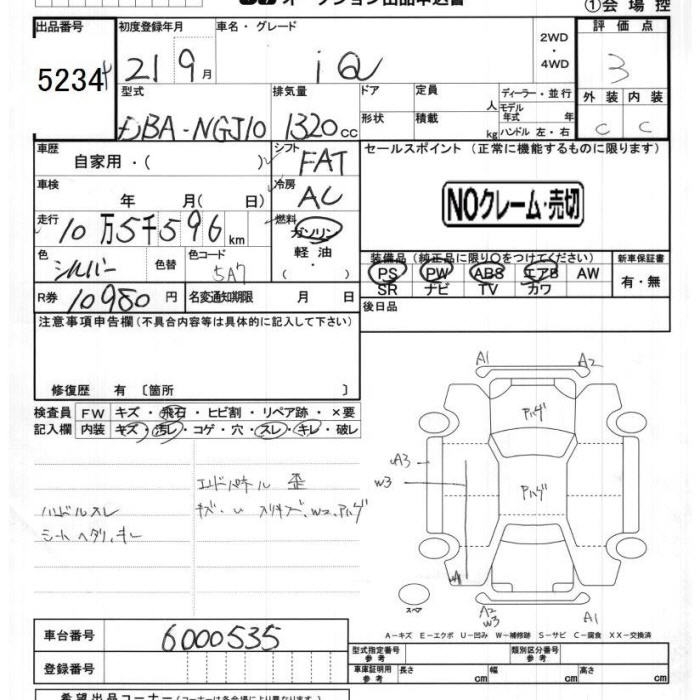 オークション出品申込書
①会場控
出品番号 初度登録年月 車名・グレード 2WD・4WD 評価点
5234 21 9月 iQ 3
型式 排気量 ドア 定員 人 ディーラー・並行 外装 内装
DBA-NGJ10 1320cc 形状 積載 kg モデル年式 年 ハンドル 左・右 C C
車歴 自家用・( ) シフト FAT セールスポイント (正常に機能するものに限ります)
車検 年 月( 日) 冷房 AC NOクレーム・売切
走行 10万5千596km 燃料 ガソリン 軽油・( )
色 シルバー 色替 色コード 5A7
装備品 (純正品に限り○をつけてください) 新車保証書
PS PW ABS エアB AW 有・無
SR ナビ TV カワ
R券 10980円 名変通知期限 月 日 後日品
注意事項申告欄 (不具合内容等は具体的に記入して下さい)
修復歴 有 〔箇所 〕
検査員 FW キズ・飛石・ヒビ割・リペア跡・×要
記入欄 内装 キズ・汚レ・コゲ・穴・スレ・キレ・破レ
エンドパネル 歪
ハンドルスレ
シートヘタリ、キレ
A1 A2
アハゲ
A3
W3
アハゲ
A2
W3
A1
スペア
A-キズ E-エクボ U-凹み W-補修跡 S-サビ C-腐食 XX-交換済
車台番号 6000535
型式指定番号 参考 類別区分番号 参考
登録番号
車庫証明用 参考 長さ cm 幅 cm 高さ cm
希望出品コーナー (コーナーは各会場により異なります)